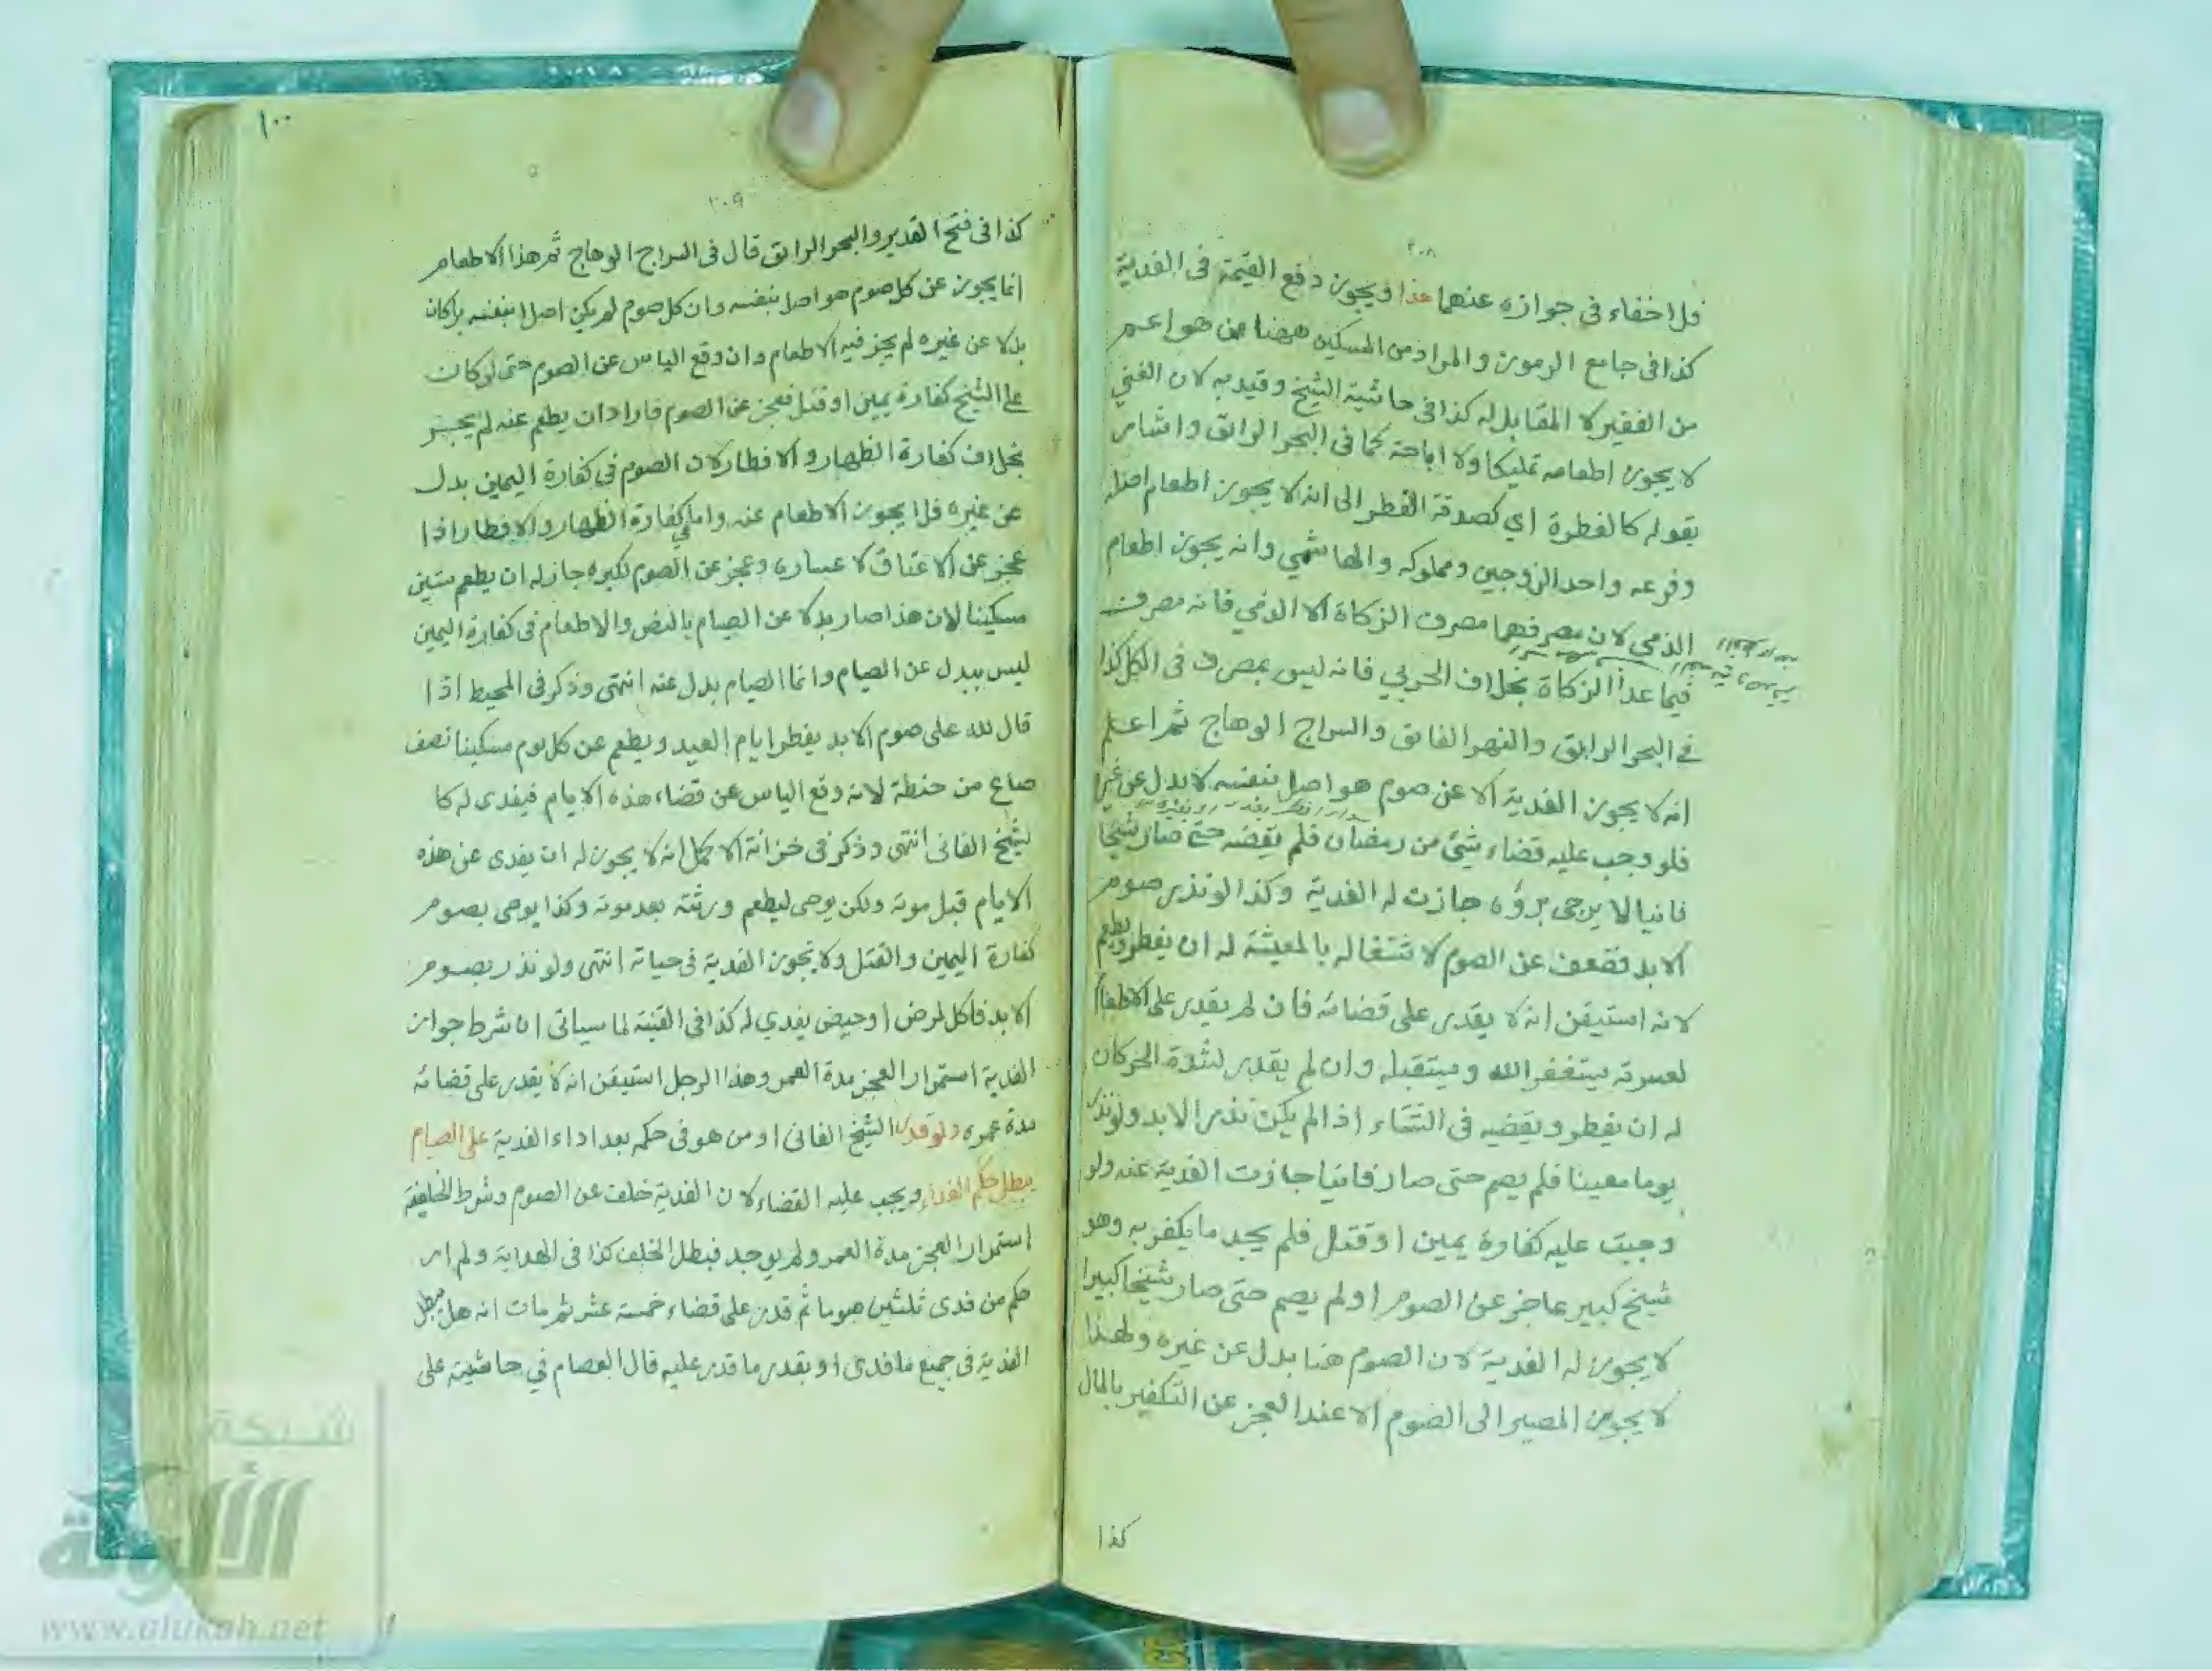 ٢٠٨
فلا خفاء فى جوازه عنهما هذا ويجوز دفع القيمة فى الفدية
كذا فى جامع الرموز والمراد من المسكين ههنا من هو اعم
من الفقير لا المقابل له كذا فى حاشية الشيخ وقيد به لان الغني
لا يجوز اطعامه تمليكا ولا اباحة كما فى البحر الرائق واشار
بقوله كالفطرة اي كصدقة الفطر الى انه لا يجوز اطعام اصله
وفرعه واحد الزوجين ومملوكه والهاشمي وانه يجوز اطعام
الذمي لان مصرفهما مصرف الزكاة الا الذمي فانه مصرف
فيما عدا الزكاة بخلاف الحربي فانه ليس بمصرف فى الكل كذا
في البحر الرايق والنهر الفائق والسراج الوهاج ثم اعلم
انه لا يجوز الفدية الا عن صوم هو اصل بنفسه لا بدل عن غيره
فلو وجب عليه قضاء شيئ من رمضان فلم يقضه حتى صار شيخا
فانيا لا يرجى برؤه جازت له الفدية وكذا لو نذر صوم
الابد فضعف عن الصوم لاشتغاله بالمعيشة له ان يفطر ويطعم
لانه استيقن انه لا يقدر على قضائه فان لم يقدر على الاطعام
لعسرته يستغفر الله ويستقبله وان لم يقدر لشدة الحر كان
له ان يفطر ويقضيه فى الشتاء اذا لم يكن نذر الابد ولو نذر
يوما معينا فلم يصم حتى صار فانيا جازت الفدية عنه ولو
وجبت عليه كفارة يمين او قتل فلم يجد ما يكفر به وهو
شيخ كبير عاجز عن الصوم او لم يصم حتى صار شيخا كبيرا
لا يجوز له الفدية لان الصوم هنا بدل عن غيره ولهذا
لا يجوز المصير الى الصوم الا عند العجز عن التكفير بالمال
كذا
١٠٠
٢٠٩
كذا فى فتح القدير والبحر الرائق قال فى السراج الوهاج ثم هذا الاطعام
انما يجوز عن كل صوم هو اصل بنفسه وان كل صوم لم يكن اصلا بنفسه بل كان
بدلا عن غيره لم يجز فيه الاطعام وان وقع الياس عن الصوم حتى لو كان
على الشيخ كفارة يمين او قتل فعجز عن الصوم فاراد ان يطعم عنه لم يجز
بخلاف كفارة الظهار والافطار لان الصوم فى كفارة اليمين بدل
عن غيره فلا يجوز الاطعام عنه واما في كفارة الظهار والافطار اذا
عجز عن الاعتاق لاعساره وعجز عن الصوم لكبره جاز له ان يطعم ستين
مسكينا لان هذا صار بدلا عن الصيام بالنص والاطعام فى كفارة اليمين
ليس ببدل عن الصيام وانما الصيام بدل عنه انتهى وذكر فى المحيط اذا
قال لله على صوم الابد يفطر ايام العيد ويطعم عن كل يوم مسكينا نصف
صاع من حنطة لانه وقع الياس عن قضاء هذه الايام فيفدى له كا
لشيخ الفانى انتهى وذكر فى خزانة الاكمل انه لا يجوز له ان يفدى عن هذه
الايام قبل موته ولكن يوصى ليطعم ورثته بعد موته وكذا يوصى بصوم
كفارة اليمين والقتل ولا تجوز الفدية فى حياته انتهى ولو نذر بصوم
الابد فاكل لمرض او حيض يفدي له كذا فى القنية لما سياتى ان شرط جواز
الفدية استمرار العجز مدة العمر وهذا الرجل استيقن انه لا يقدر على قضائه
مدة عمره ولو قدر الشيخ الفانى او من هو فى حكمه بعد اداء الفدية على الصيام
يبطل حكم الفداء ويجب عليه القضاء لان الفدية خلف عن الصوم وشرط الخليفة
استمرار العجز مدة العمر ولم يوجد فبطل الخلف كذا فى الهداية ولم ار
حكم من فدى ثلثين صوما ثم قدر على قضاء خمسة عشر ثم مات انه هل يبطل
الفدية فى جميع ما فدى او بقدر ما قدر عليه قال العصام في حاشيته على
شبكة
الألوكة
www.alukah.net